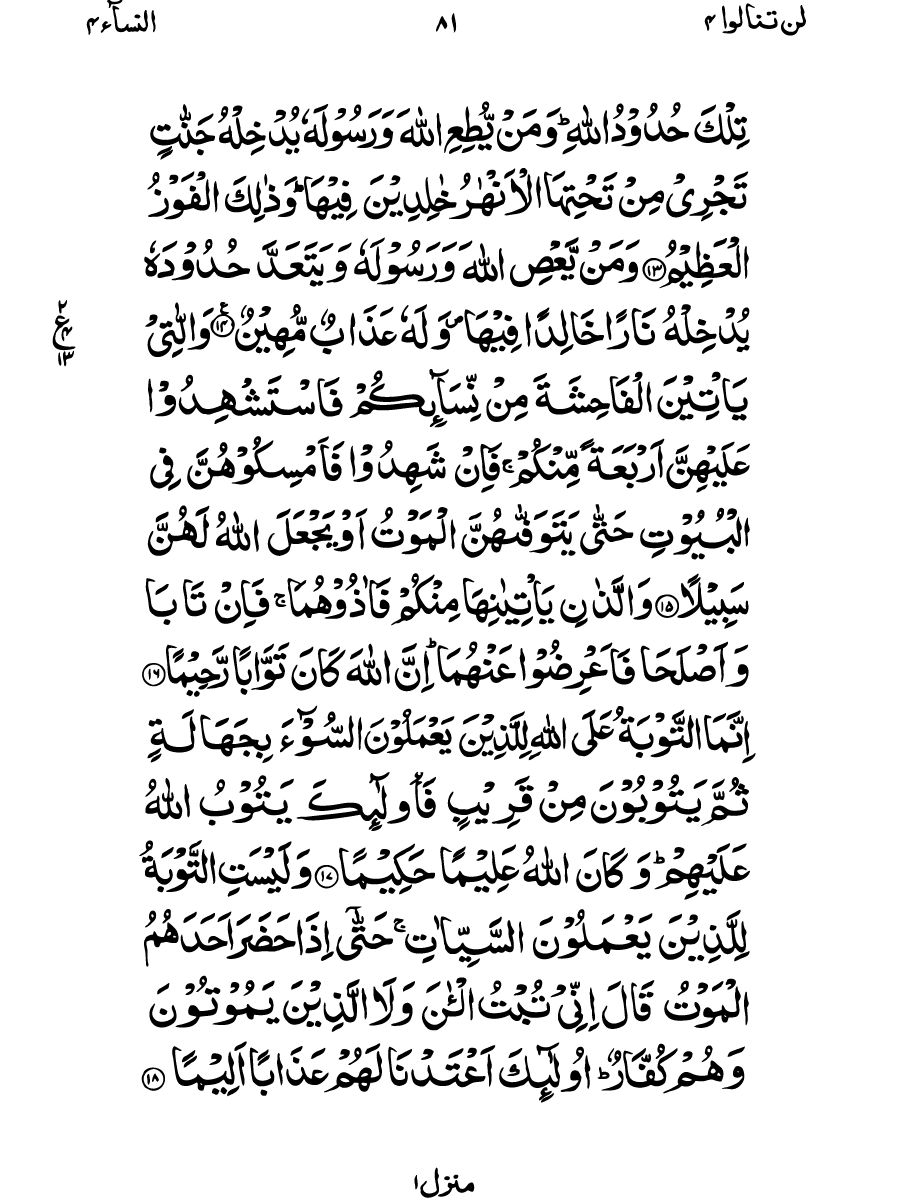 لن تنالوا ۴ ۸۱ النسآء ۴
تِلۡكَ حُدُوۡدُ اللّٰهِ‌ؕ وَمَنۡ يُّطِعِ اللّٰهَ وَرَسُوۡلَهٗ يُدۡخِلۡهُ جَنّٰتٍ
تَجۡرِىۡ مِنۡ تَحۡتِهَا الۡاَنۡهٰرُ خٰلِدِيۡنَ فِيۡهَا‌ؕ وَذٰلِكَ الۡفَوۡزُ
الۡعَظِيۡمُ ‏﴿۱۳﴾‏ وَمَنۡ يَّعۡصِ اللّٰهَ وَرَسُوۡلَهٗ وَيَتَعَدَّ حُدُوۡدَهٗ
يُدۡخِلۡهُ نَارًا خَالِدًا فِيۡهَا وَلَهٗ عَذَابٌ مُّهِيۡنٌ ‏﴿۱۴﴾‏ وَالّٰتِىۡ
۲
ع
۴
۱۳
يَاۡتِيۡنَ الۡفَاحِشَةَ مِنۡ نِّسَآٮِٕكُمۡ فَاسۡتَشۡهِدُوۡا
عَلَيۡهِنَّ اَرۡبَعَةً مِّنۡكُمۡ‌ۚ فَاِنۡ شَهِدُوۡا فَاَمۡسِكُوۡهُنَّ فِى
الۡبُيُوۡتِ حَتّٰى يَتَوَفّٰٮهُنَّ الۡمَوۡتُ اَوۡ يَجۡعَلَ اللّٰهُ لَهُنَّ
سَبِيۡلًا ‏﴿۱۵﴾‏ وَالَّذٰنِ يَاۡتِيٰنِهَا مِنۡكُمۡ فَاٰذُوۡهُمَا‌ۚ فَاِنۡ تَابَا
وَاَصۡلَحَا فَاَعۡرِضُوۡا عَنۡهُمَا‌ؕ اِنَّ اللّٰهَ كَانَ تَوَّابًا رَّحِيۡمًا ‏﴿۱۶﴾‏
اِنَّمَا التَّوۡبَةُ عَلَى اللّٰهِ لِلَّذِيۡنَ يَعۡمَلُوۡنَ السُّوۡٓءَ بِجَهَالَةٍ
ثُمَّ يَتُوۡبُوۡنَ مِنۡ قَرِيۡبٍ فَاُولٰٓٮِٕكَ يَتُوۡبُ اللّٰهُ
عَلَيۡهِمۡ‌ؕ وَكَانَ اللّٰهُ عَلِيۡمًا حَكِيۡمًا ‏﴿۱۷﴾‏ وَلَيۡسَتِ التَّوۡبَةُ
لِلَّذِيۡنَ يَعۡمَلُوۡنَ السَّيِّاٰتِ‌ۚ حَتّٰٓى اِذَا حَضَرَ اَحَدَهُمُ
الۡمَوۡتُ قَالَ اِنِّىۡ تُبۡتُ الۡـــٰٔنَ وَلَا الَّذِيۡنَ يَمُوۡتُوۡنَ
وَهُمۡ كُفَّارٌ‌ ؕ اُولٰٓٮِٕكَ اَعۡتَدۡنَا لَهُمۡ عَذَابًا اَ لِيۡمًا ‏﴿۱۸﴾‏
منزل ۱